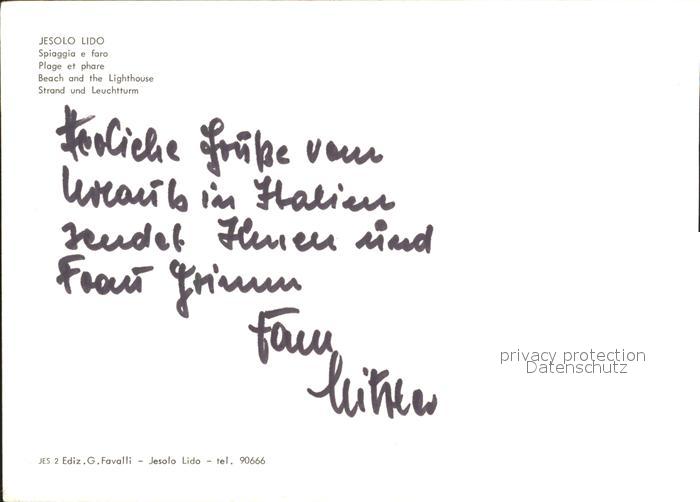 JESOLO LIDO
Spiaggia e faro
Plage et phare
Beach and the Lighthouse
Strand und Leuchtturm
Herliche Grüße vom
Urlaub in Italien
sendet Ihnen und
Frau Grimm
Fam
privacy protection
Datenschutz
JES 2 Ediz.G.Favalli - Jesolo Lido - tel. 90666